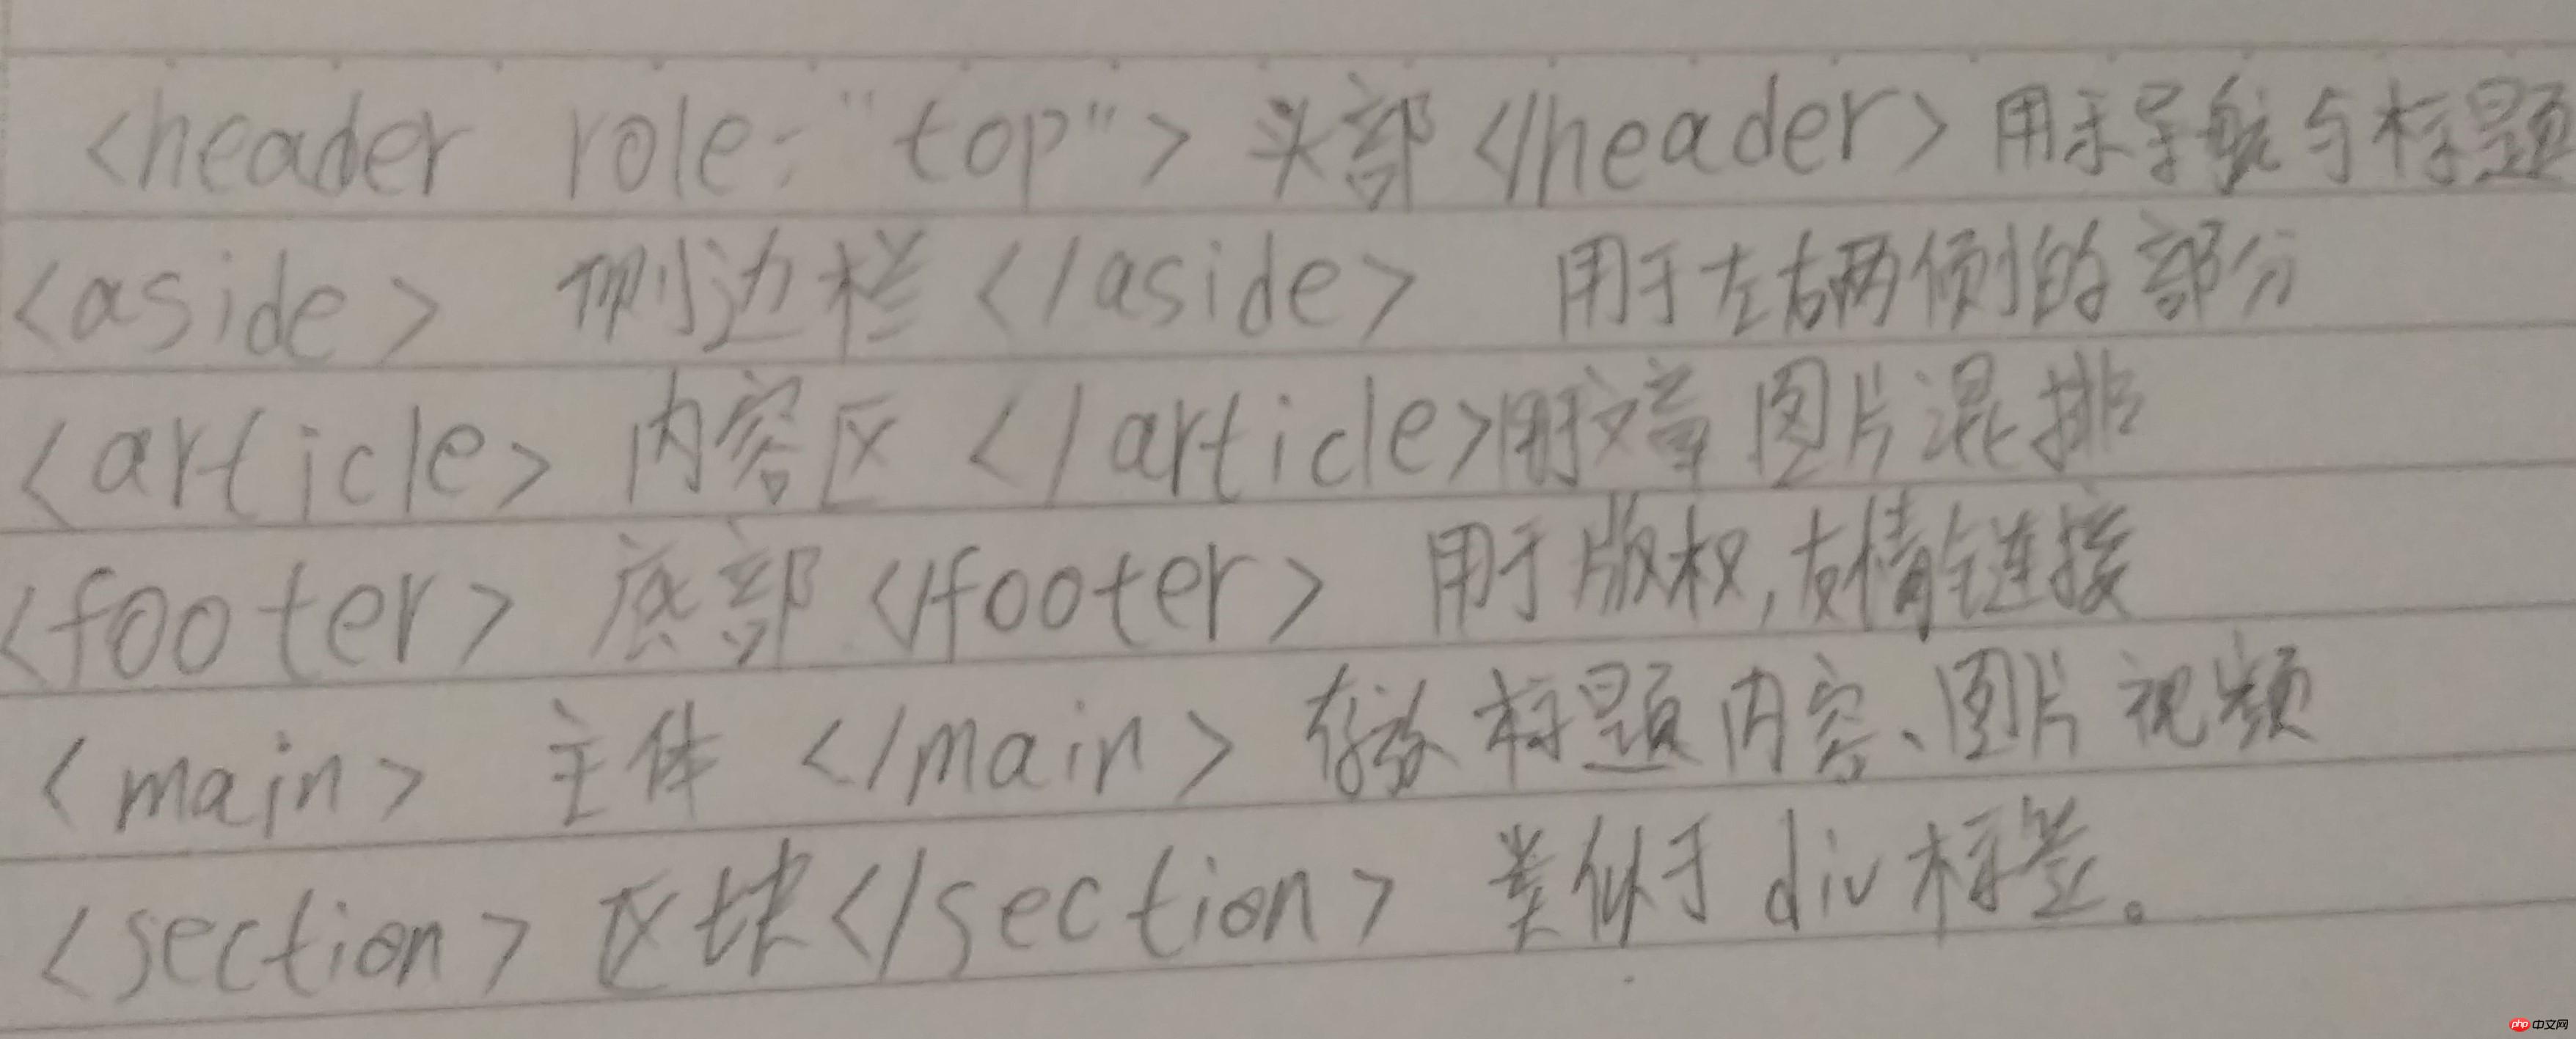 <header role="top"> 头部 </header> 用于导航与标题
<aside> 侧边栏 </aside> 用于左右两侧的部分
<article> 内容区 </article> 用于文章图片混排
<footer> 底部 </footer> 用于版权,友情链接
<main> 主体 </main> 存放标题内容、图片视频
<section> 区块 </section> 类似于div标签。
php 中文网